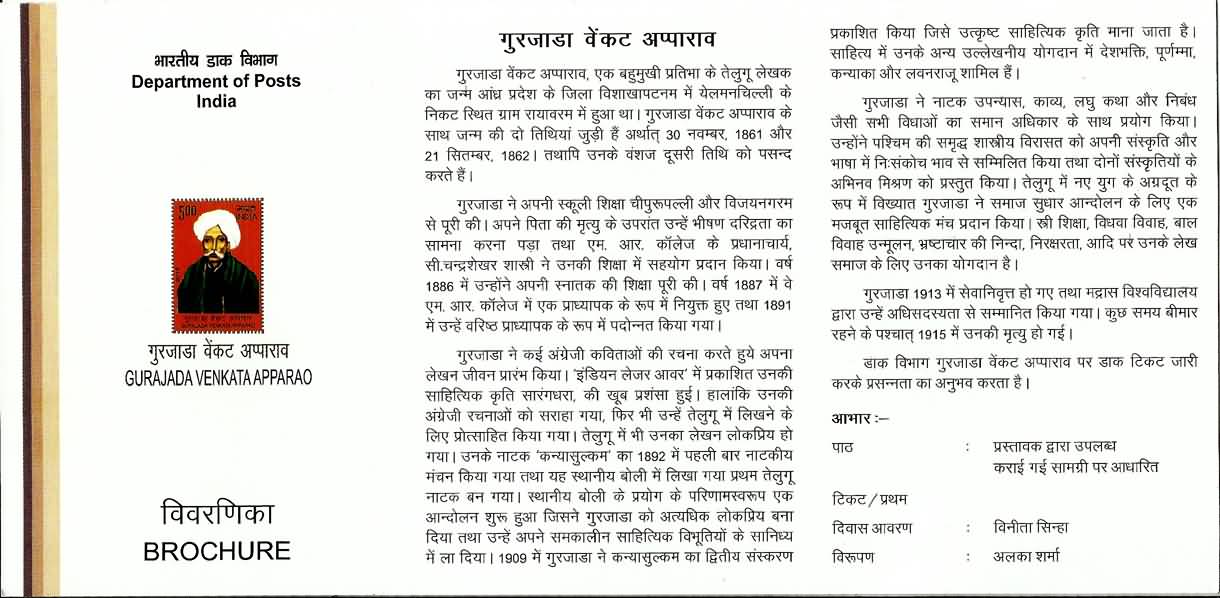 भारतीय डाक विभाग
Department of Posts
India
500
भारत INDIA
गुरजाडा वेंकट अप्पाराव
GURAJADA VENKATA APPARAO
गुरजाडा वेंकट अप्पाराव
GURAJADA VENKATA APPARAO
विवरणिका
BROCHURE
गुरजाडा वेंकट अप्पाराव
गुरजाडा वेंकट अप्पाराव, एक बहुमुखी प्रतिभा के तेलुगू लेखक
का जन्म आंध्र प्रदेश के जिला विशाखापटनम में येलमनचिल्ली के
निकट स्थित ग्राम रायावरम में हुआ था। गुरजाडा वेंकट अप्पाराव के
साथ जन्म की दो तिथियां जुड़ी हैं अर्थात् 30 नवम्बर, 1861 और
21 सितम्बर, 1862। तथापि उनके वंशज दूसरी तिथि को पसन्द
करते हैं।
गुरजाडा ने अपनी स्कूली शिक्षा चीपुरूपल्ली और विजयनगरम
से पूरी की। अपने पिता की मृत्यु के उपरांत उन्हें भीषण दरिद्रता का
सामना करना पड़ा तथा एम. आर. कॉलेज के प्रधानाचार्य,
सी.चन्द्रशेखर शास्त्री ने उनकी शिक्षा में सहयोग प्रदान किया। वर्ष
1886 में उन्होंने अपनी स्नातक की शिक्षा पूरी की। वर्ष 1887 में वे
एम. आर. कॉलेज में एक प्राध्यापक के रूप में नियुक्त हुए तथा 1891
में उन्हें वरिष्ठ प्राध्यापक के रूप में पदोन्नत किया गया।
गुरजाडा ने कई अंग्रेजी कविताओं की रचना करते हुये अपना
लेखन जीवन प्रारंभ किया। 'इंडियन लेजर आवर' में प्रकाशित उनकी
साहित्यिक कृति सारंगधरा, की खूब प्रशंसा हुई। हालांकि उनकी
अंग्रेजी रचनाओं को सराहा गया, फिर भी उन्हें तेलुगू में लिखने के
लिए प्रोत्साहित किया गया। तेलुगू में भी उनका लेखन लोकप्रिय हो
गया। उनके नाटक 'कन्यासुल्कम' का 1892 में पहली बार नाटकीय
मंचन किया गया तथा यह स्थानीय बोली में लिखा गया प्रथम तेलुगू
नाटक बन गया। स्थानीय बोली के प्रयोग के परिणामस्वरूप एक
आन्दोलन शुरू हुआ जिसने गुरजाडा को अत्यधिक लोकप्रिय बना
दिया तथा उन्हें अपने समकालीन साहित्यिक विभूतियों के सानिध्य
में ला दिया। 1909 में गुरजाडा ने कन्यासुल्कम का द्वितीय संस्करण
प्रकाशित किया जिसे उत्कृष्ट साहित्यिक कृति माना जाता है।
साहित्य में उनके अन्य उल्लेखनीय योगदान में देशभक्ति, पूर्णम्मा,
कन्याका और लवनराजू शामिल हैं।
गुरजाडा ने नाटक उपन्यास, काव्य, लघु कथा और निबंध
जैसी सभी विधाओं का समान अधिकार के साथ प्रयोग किया।
उन्होंने पश्चिम की समृद्ध शास्त्रीय विरासत को अपनी संस्कृति और
भाषा में निःसंकोच भाव से सम्मिलित किया तथा दोनों संस्कृतियों के
अभिनव मिश्रण को प्रस्तुत किया। तेलुगू में नए युग के अग्रदूत के
रूप में विख्यात गुरजाडा ने समाज सुधार आन्दोलन के लिए एक
मजबूत साहित्यिक मंच प्रदान किया। स्त्री शिक्षा, विधवा विवाह, बाल
विवाह उन्मूलन, भ्रष्टाचार की निन्दा, निरक्षरता, आदि पर उनके लेख
समाज के लिए उनका योगदान है।
गुरजाडा 1913 में सेवानिवृत्त हो गए तथा मद्रास विश्वविद्यालय
द्वारा उन्हें अधिसदस्यता से सम्मानित किया गया। कुछ समय बीमार
रहने के पश्चात् 1915 में उनकी मृत्यु हो गई।
डाक विभाग गुरजाडा वेंकट अप्पाराव पर डाक टिकट जारी
करके प्रसन्नता का अनुभव करता है।
आभार :–
पाठ : प्रस्तावक द्वारा उपलब्ध
कराई गई सामग्री पर आधारित
टिकट / प्रथम
दिवास आवरण : विनीता सिन्हा
विरूपण : अलका शर्मा